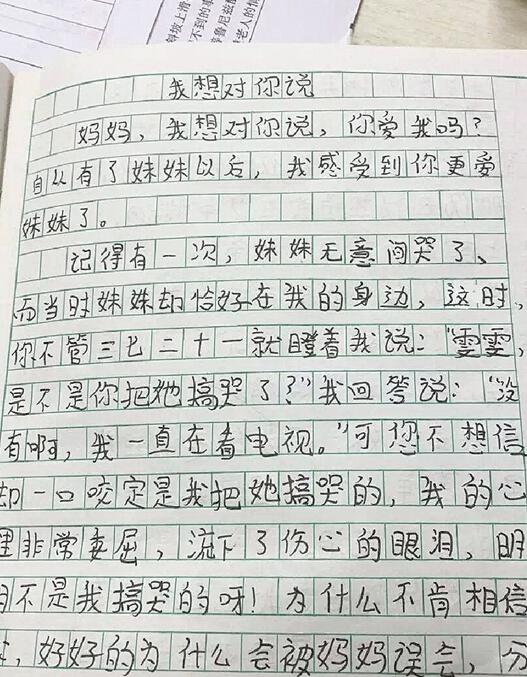 我想对你说
妈妈，我想对你说，你爱我吗？
自从有了妹妹以后，我感受到你更爱
妹妹了。
记得有一次，妹妹无意间哭了、
而当时妹妹却恰好在我的身边，这时，
你不管三七二十一就瞪着我说：“雯雯，
是不是你把她搞哭了？”我回答说：“没
有啊，我一直在看电视。”可您不想信
却一口咬定是我把她搞哭的，我的心
里非常委屈，流下了伤心的眼泪，明
明不是我搞哭的呀！为什么不肯相信
，好好的为什么会被妈妈误会，分